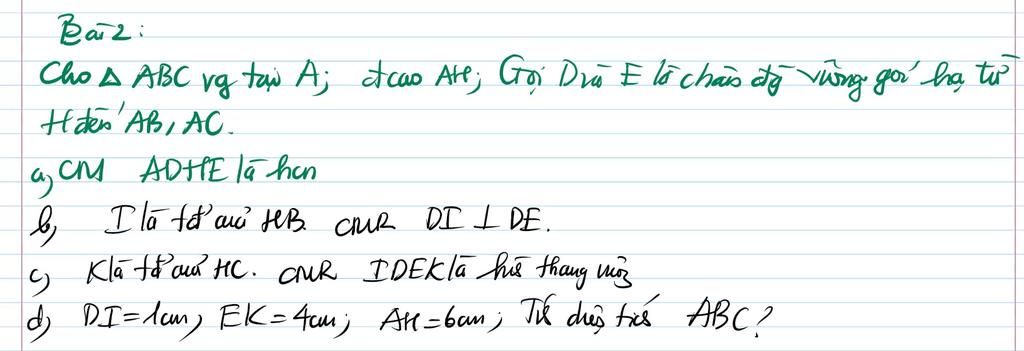 Bài 2:
Cho Δ ABC vg tại A; đcao AH; Gọi D và E là chân đg vuông góc hạ từ
H đến AB, AC.
a, CM ADHE là hcn
b, I là tđ của HB. CMR DI ⊥ DE.
c, K là tđ của HC. CMR IDEK là hình thang vuông
d, DI=1cm, EK=4cm; AH=6cm; Tính diện tích ABC?